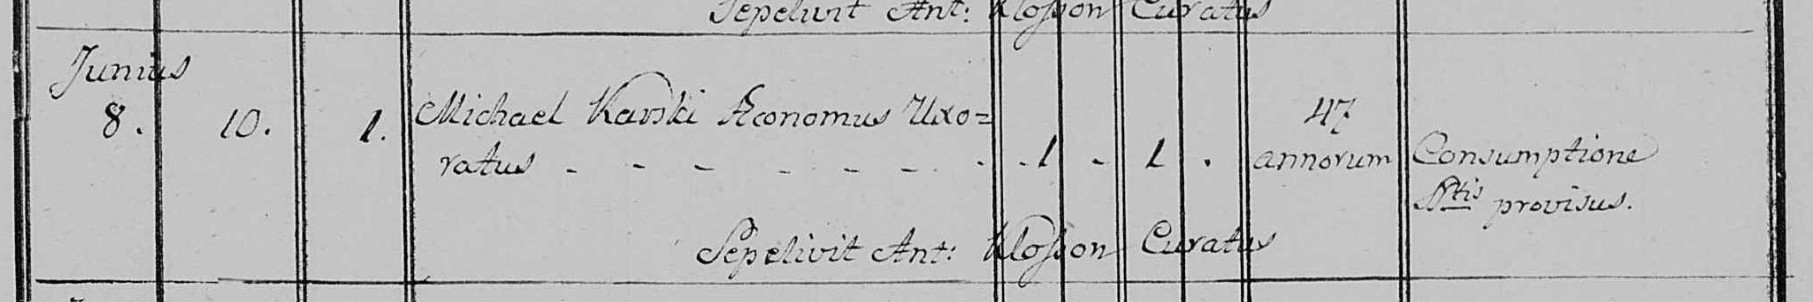 Sepelivit Ant: Klosson Curatus
Junius
8. 10. 1. Michael Karski Æconomus Uxo=
ratus - - - - - - - - 1 - 1 . 47 annorum Consumptione
Sntis provisus.
Sepelivit Ant: Klosson Curatus